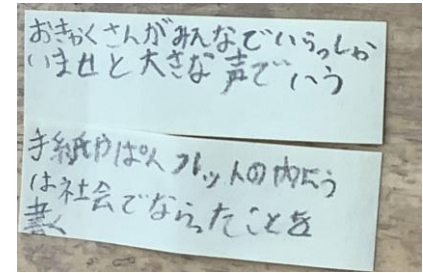 おきゃくさんがみんなでいらっしゃ
いませと大きな声でいう
手紙やぱんフレットの内よう
は社会でならったことを
書く